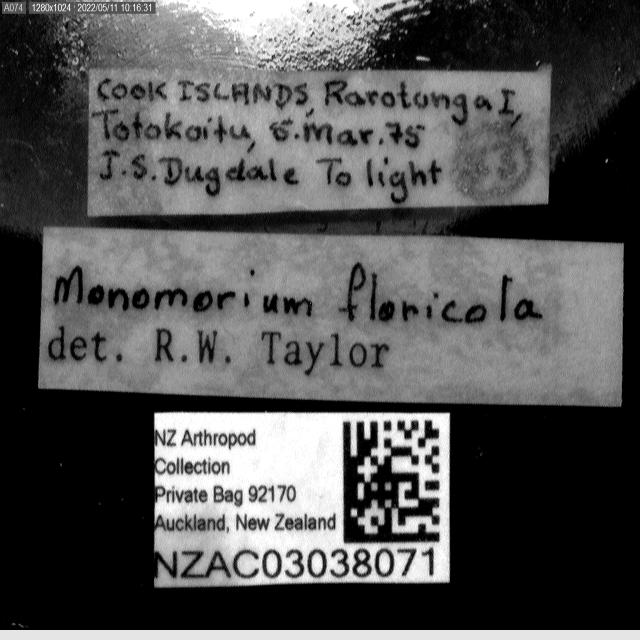 A074 1280x1024 2022/05/11 10:16:31
COOK ISLANDS, Rarotonga I,
Totokoitu, 5.Mar.75
J.S.Dugdale To light
Monomorium floricola
det. R.W. Taylor
NZ Arthropod
Collection
Private Bag 92170
Auckland, New Zealand
NZAC03038071